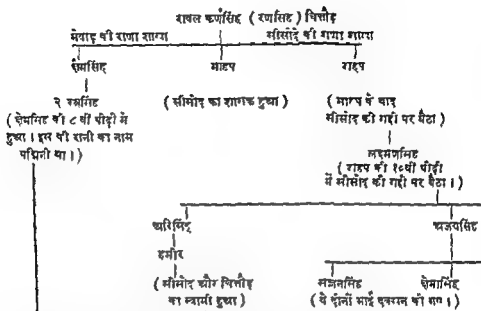 रावल कर्णसिंह ( रणसिंह ) चित्तौड़
मेवाड़ की राणा शाखा
सीसोदे की राणा शाखा
क्षेमसिंह
माहप
राहप
२ रत्नसिंह
( क्षेमसिंह की ८ वीं पीढ़ी में
हुआ । इस की रानी का नाम
पद्मिनी था । )
( सीसोद का शासक हुआ )
( माहप के बाद
सीसोद की गद्दी पर बैठा )
लक्ष्मणसिंह
( राहप की १०वीं पीढ़ी
में सीसोद की गद्दी पर बैठा । )
अरिसिंह
अजयसिंह
हमीर
( सीसोद और चित्तौड़
का स्वामी हुआ )
सज्जनसिंह
क्षेमसिंह
( ये दोनों भाई दक्खन को गए । )